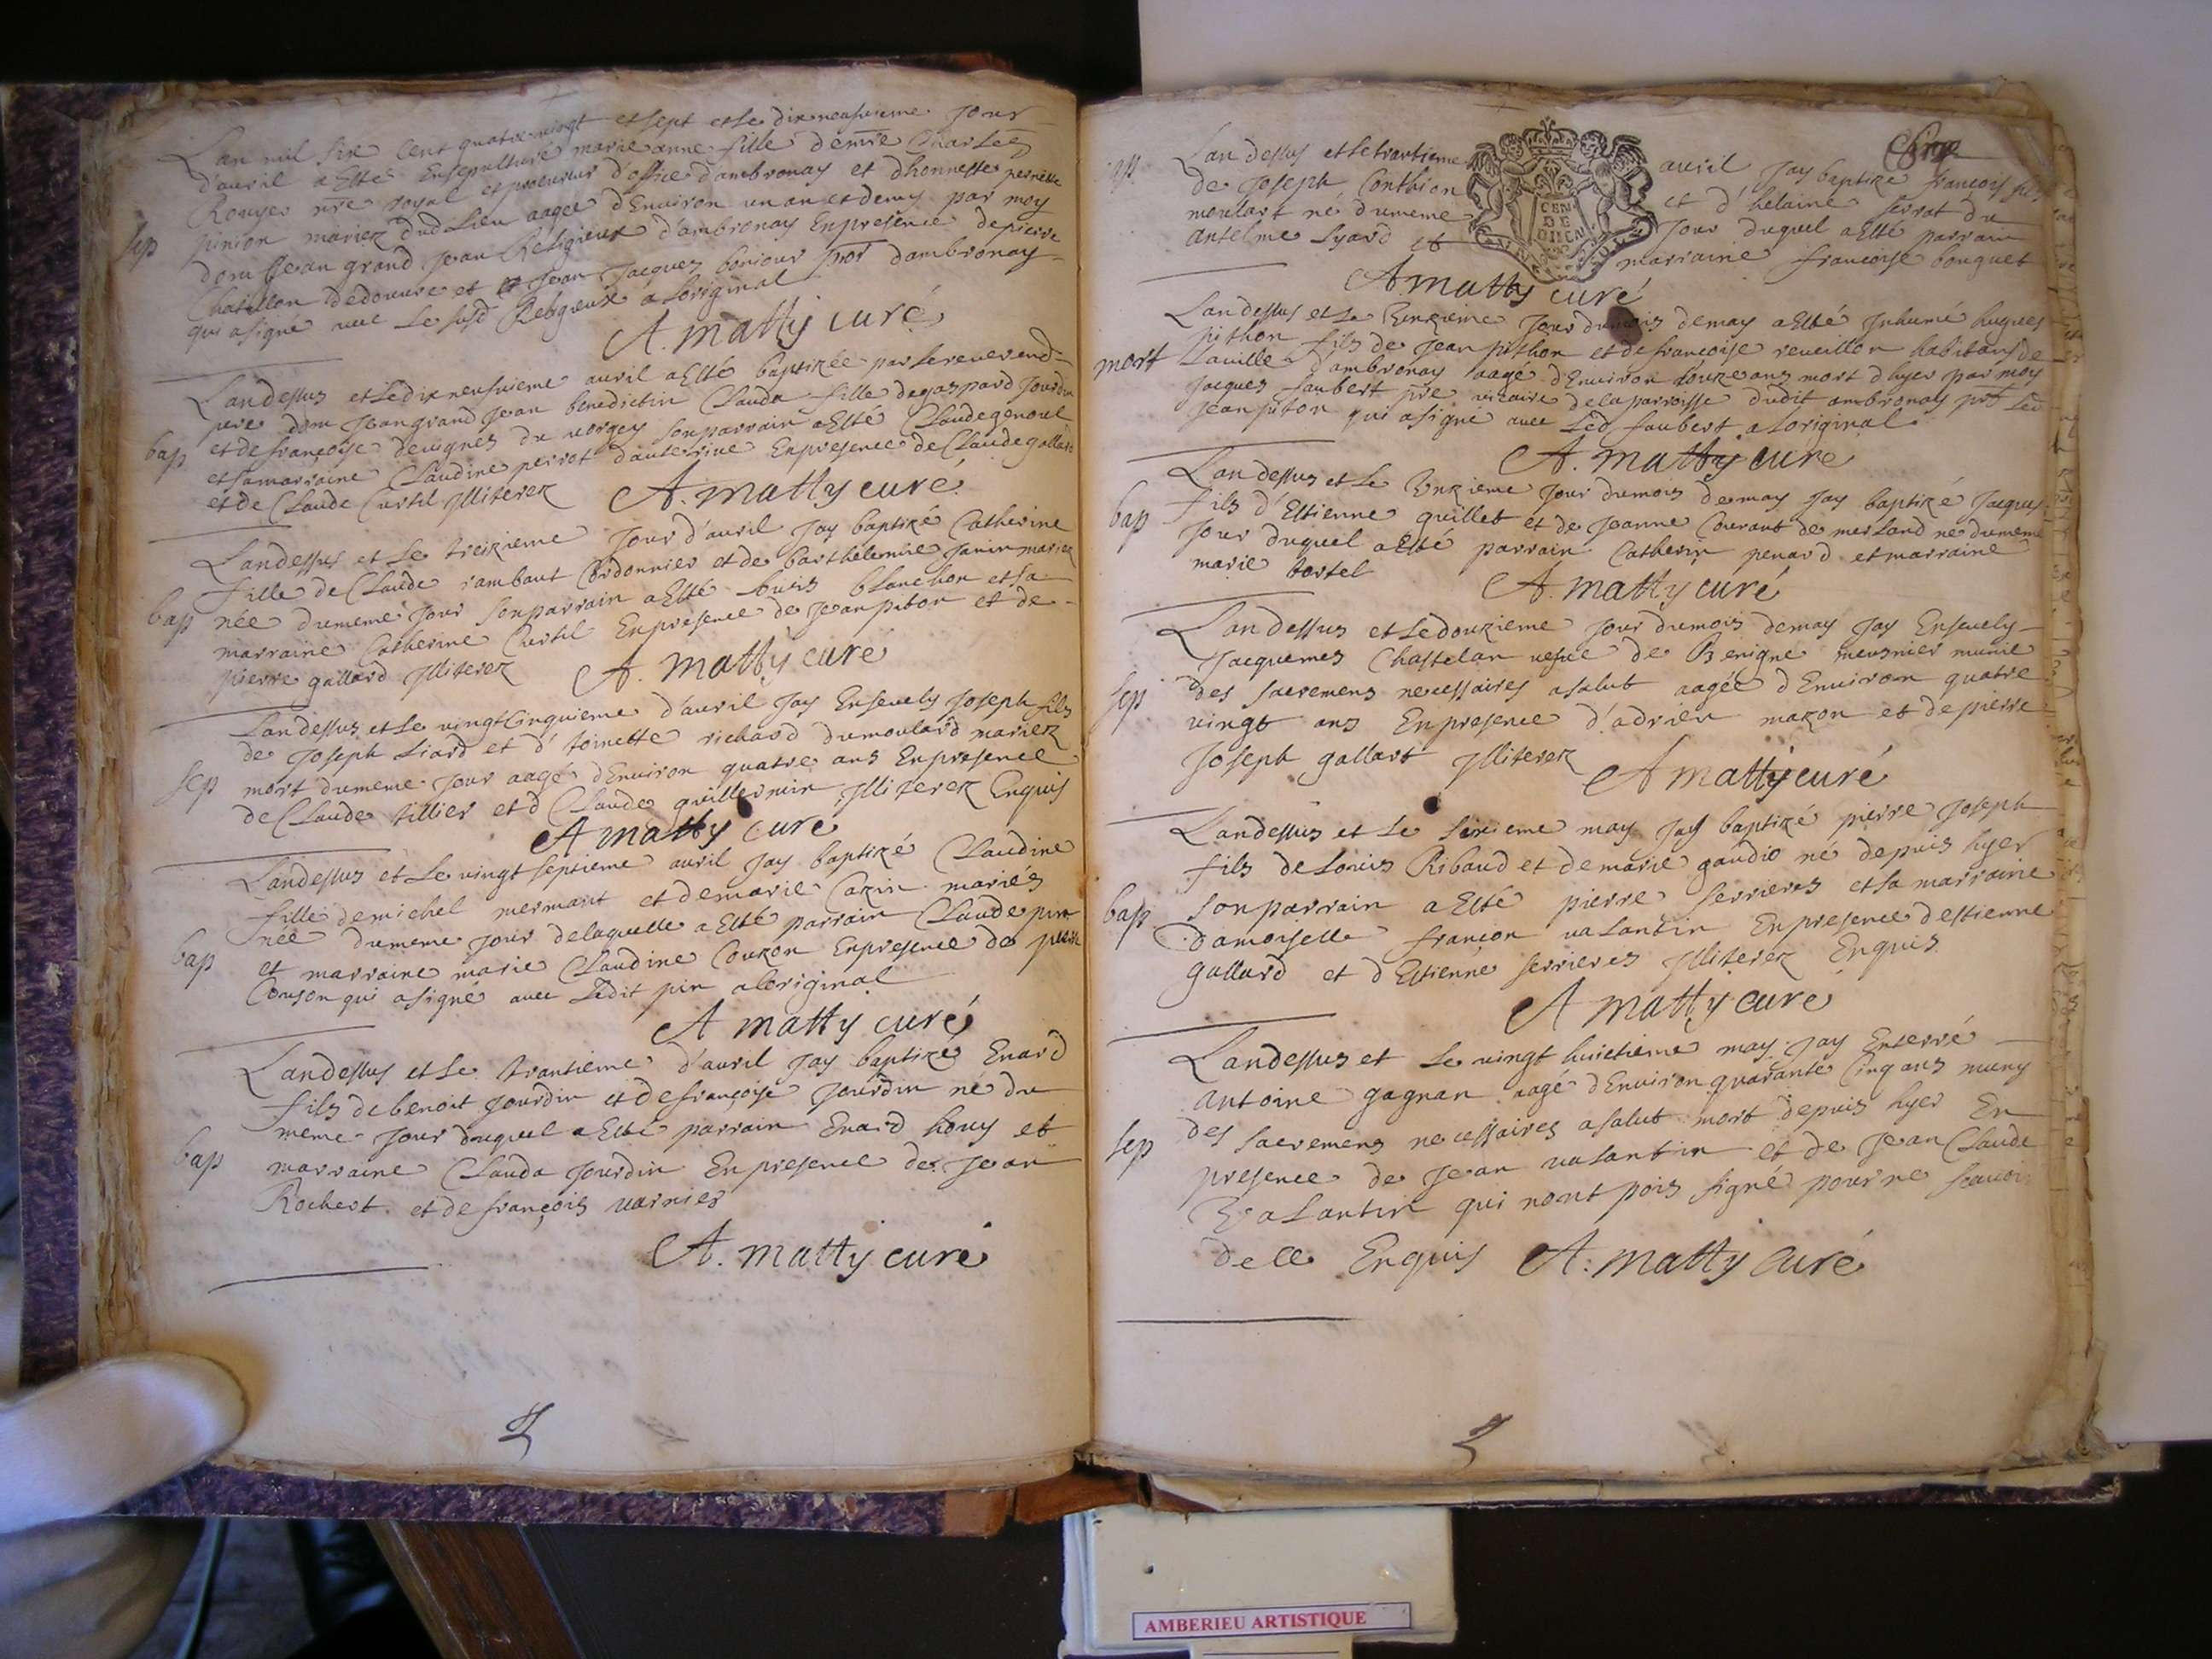 Lan mil six Cent quatre vingt et sept et le dix neufuieme Jour
d'auril a Esté Ensepulturé marie anne fille de mre Charles
Rouyer nre royal et procureur d'office d'ambronay et dhonneste pernette
sep
pinion mariez dud Lieu aagee d'Enuiron un an et demy par moy
dom Jean grand Jean Religieux d'ambronay En presence de pierre
Chatillon de douure et Jean Jacques bonjour dambronay
qui a signé auec Le susd Religieux a Loriginal
A. matty curé
Lan dessus et Le dix neufuieme auril a Esté baptizée par Le reuerend
pere dom Jean grand Jean benedictin Clauda fille de gaspard Jourdin
bap
et de françoise deuignes du uorgey son parrain a Esté Claude genoul
et sa marraine Claudine perrot d'auterive En presence de Claude gallard
et de Claude Curtil Jlliterez
A. matty curé
Lan dessus et Le treizieme Jour d'auril Jay baptizé Catherine
fille de Claude rambaut Cordonnier et de barthelemie Janin mariez
bap
née du meme Jour son parrain a Esté Louis blanchon et sa
marraine Catherine Curtil En presence de Jean piton et de
pierre gallard Jlliterez
A. matty curé
Lan dessus et Le vingt Cinquieme d'auril Jay Enseuely Joseph fils
de Joseph Liard et d'toinette richard du moulard mariez
sep
mort du meme Jour aagé d'Enuiron quatre ans En presence
de Claude tillier et d Claude guillermin Jlliterez Enquis
A matty curé
Lan dessus et Le vingt septieme auril Jay baptizé Claudine
fille de michel mermant et de marie Cazin mariés
née du meme Jour de laquelle a Esté parrain Claude pin
bap
et marraine marie Claudine Couzon En presence de pierre
Couson qui a signé auec Ledit pin a loriginal
A matty curé
Lan dessus et Le trantieme d'auril Jay baptizé Enard
fils de benoit Jourdin et de françoise Jourdin né du
meme Jour duquel a Esté parrain Enard houy et
bap
marraine Clauda Jourdin En presence de Jean
Rochert et de françois varnier
A. matty curé
Lan dessus et Le trantieme auril Jay baptizé françois fils
de Joseph Conthion et d'helaine serrat du
moulart né du meme Jour duquel a Esté parrain
antelme Lyard et marraine francoise bouquet
A matty curé
Lan dessus et Le Unzieme Jour du mois de may a Esté Jnhumé hugues
pithon fils de Jean pithon et de francoise reueillon habitans de
mort
La uille d'ambronay aagé d'Enuiron douze ans mort dhyer par moy
Jacques faubert pre vicaire de la parroisse dudit ambronay
Jean piton qui a signé auec Led faubert a Loriginal
A. matty cure
Lan dessus et Le Unzieme Jour du mois de may Jay baptizé Jacques
bap
fils d'Estienne quillet et de Jeanne Courant de merland né du meme
Jour duquel a Esté parrain Catherin penard et marraine
marie tortel
A. matty curé
Lan dessus et Le douzieme Jour du mois de may Jay Enseuely
Jacquemes Chastelan uefue de Benigne meusnier munie
sep
des sacremens necessaires a salut aagée d'Enuiron quatre
vingt ans En presence d'adrien mazon et de pierre
Joseph gallart Jlliterez
A matty curé
Lan dessus et Le sixieme may Jay baptizé pierre Joseph
fils de Louis Ribaud et de marie gaudio né depuis hyer
bap
son parrain a Esté pierre serrieres et sa marraine
damoiselle françon valantin En presence destienne
gallard et d'Estienne serrieres Jlliterez Enquis
A matty curé
Lan dessus et Le vingt huictieme may Jay Enterré
antoine gagnan aagé d'Enuiron quarante Cinq ans muny
sep
des sacremens necessaires a salut mort depuis hyer En
presence de Jean valantin et de Jean Claude
Valantin qui n'ont pois signé pour ne scauoir
de ce Enquis A. matty Curé
AMBERIEU ARTISTIQUE